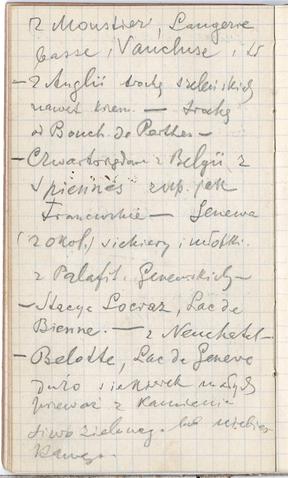 z Moustier, Laugerie
basse, Vaucluse, i
– z Anglii trochę
nawet krzem. — trochę
od Bouch. de Perthes –
– Czwartorzędow z Belgii z
Spiennes zup. jak
Francuskie — Genewa
(z okol.) siekiery i młotki.
z Palafit. Genewskich –
– Stacya Locraz, Lac de
Bienne. — z Neuchatel –
– Belotte, Lac de Geneve
Dużo siekierek małych
przeważ z kamienia
zielonego. lub